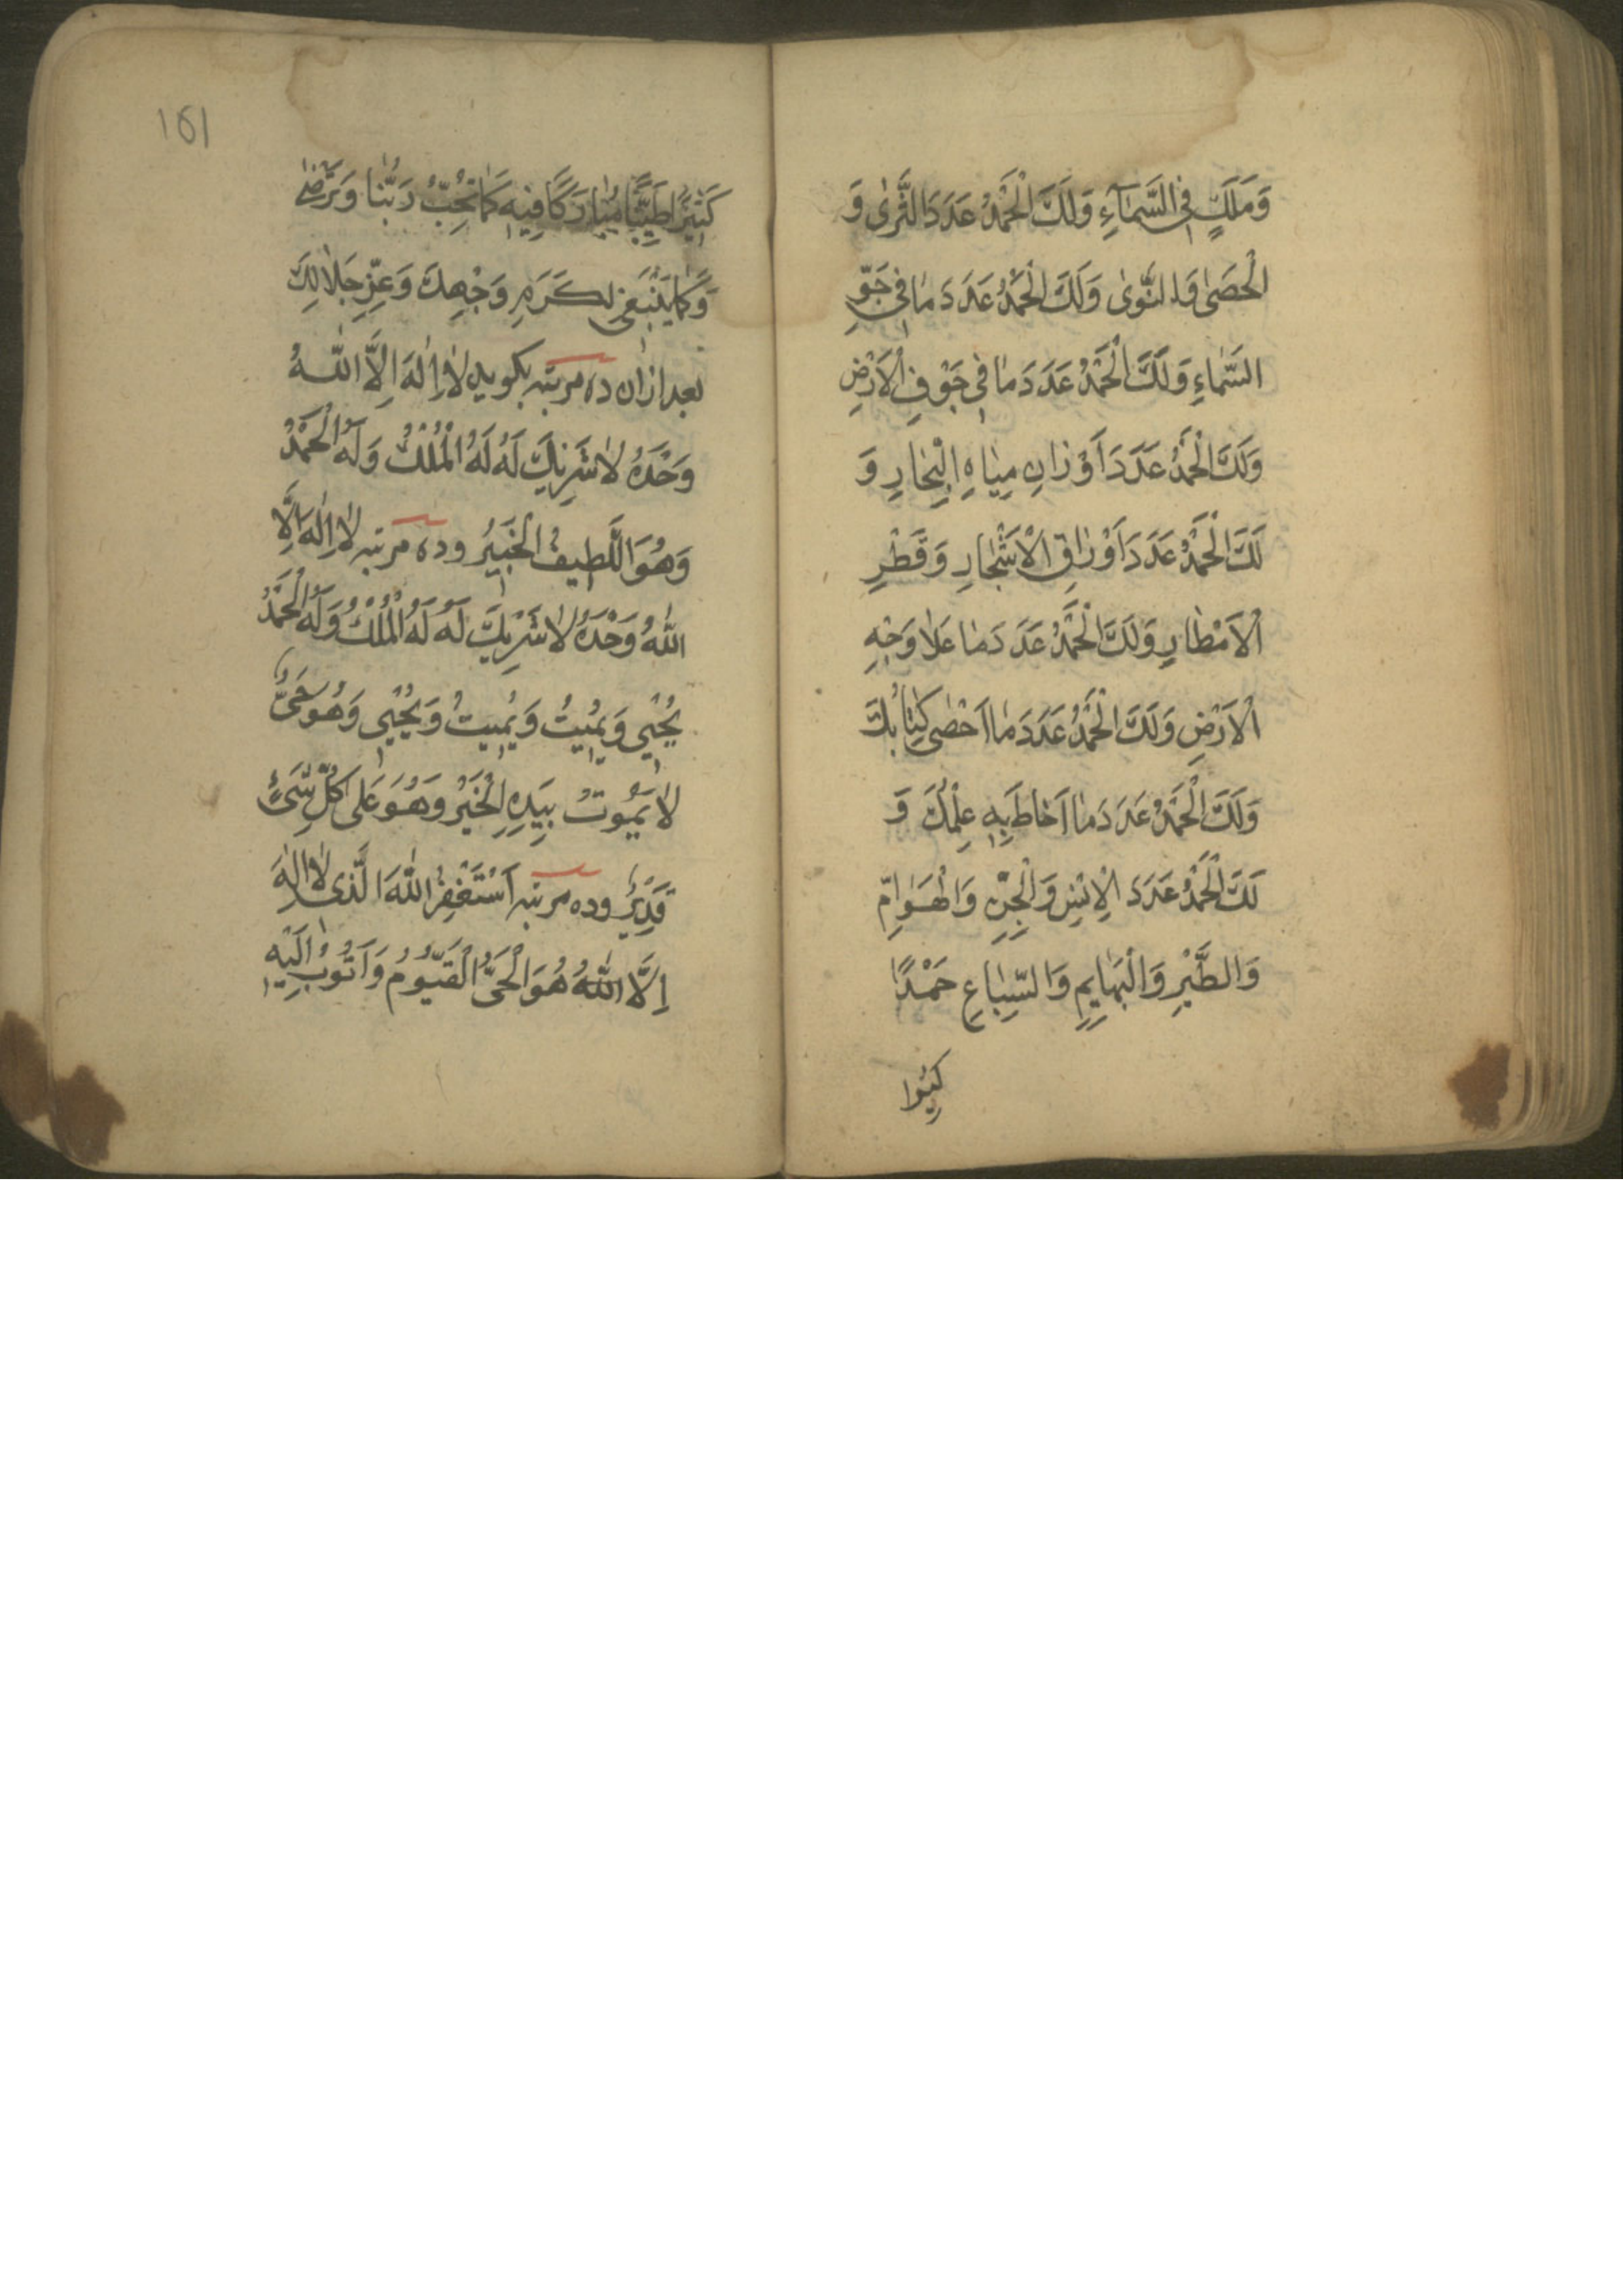 وَمَلَكٍ فِي السَّمَآءِ وَلَكَ الْحَمْدُ عَدَدَ الثَّرٰى وَ
الْحَصٰى وَالنَّوٰى وَلَكَ الْحَمْدُ عَدَدَ مٰا فِي جَوِّ
السَّمٰاءِ وَلَكَ الْحَمْدُ عَدَدَ مٰا فِي جَوْفِ الْاَرْضِ
وَلَكَ الْحَمْدُ عَدَدَ اَوْزٰانِ مِيٰاهِ الْبِحٰارِ وَ
لَكَ الْحَمْدُ عَدَدَ اَوْرٰاقِ الْاَشْجٰارِ وَقَطْرِ
الْاَمْطٰارِ وَلَكَ الْحَمْدُ عَدَدَ مٰا عَلٰا وَجْهِ
الْاَرْضِ وَلَكَ الْحَمْدُ عَدَدَ مٰا اَحْصٰى كِتٰابُكَ
وَلَكَ الْحَمْدُ عَدَدَ مٰا اَحٰاطَ بِهِ عِلْمُكَ وَ
لَكَ الْحَمْدُ عَدَدَ الْاِنْسِ وَالْجِنِّ وَالْهَوٰامِّ
وَالطَّيْرِ وَالْبَهٰايِمِ وَالسِّبٰاعِ حَمْدًا
كثيرا
161
كَثِيرًا طَيِّبًا مُبٰارَكًا فِيهِ كَمٰا تُحِبُّ رَبُّنٰا وَتَرْضٰى
وَكَمٰا يَنْبَغِي لِكَرَمِ وَجْهِكَ وَعِزِّ جَلٰالِكَ
بعد ازان ده مرتبه بكويد لٰا اِلٰهَ اِلَّا اللّٰهُ
وَحْدَهُ لٰا شَرِيكَ لَهُ لَهُ الْمُلْكُ وَلَهُ الْحَمْدُ
وَهُوَ اللَّطِيفُ الْخَبِيرُ وده مرتبه لٰا اِلٰهَ اِلَّا
اللّٰهُ وَحْدَهُ لٰا شَرِيكَ لَهُ لَهُ الْمُلْكُ وَلَهُ الْحَمْدُ
يُحْيِي وَيُمِيتُ وَيُمِيتُ وَيُحْيِي وَهُوَ حَيٌّ
لٰا يَمُوتُ بِيَدِهِ الْخَيْرُ وَهُوَ عَلٰى كُلِّ شَيْءٍ
قَدِيرٌ وده مرتبه اَسْتَغْفِرُ اللّٰهَ الَّذِي لٰا اِلٰهَ
اِلَّا اللّٰهُ هُوَ الْحَيُّ الْقَيُّومُ وَاَتُوبُ اِلَيْهِ